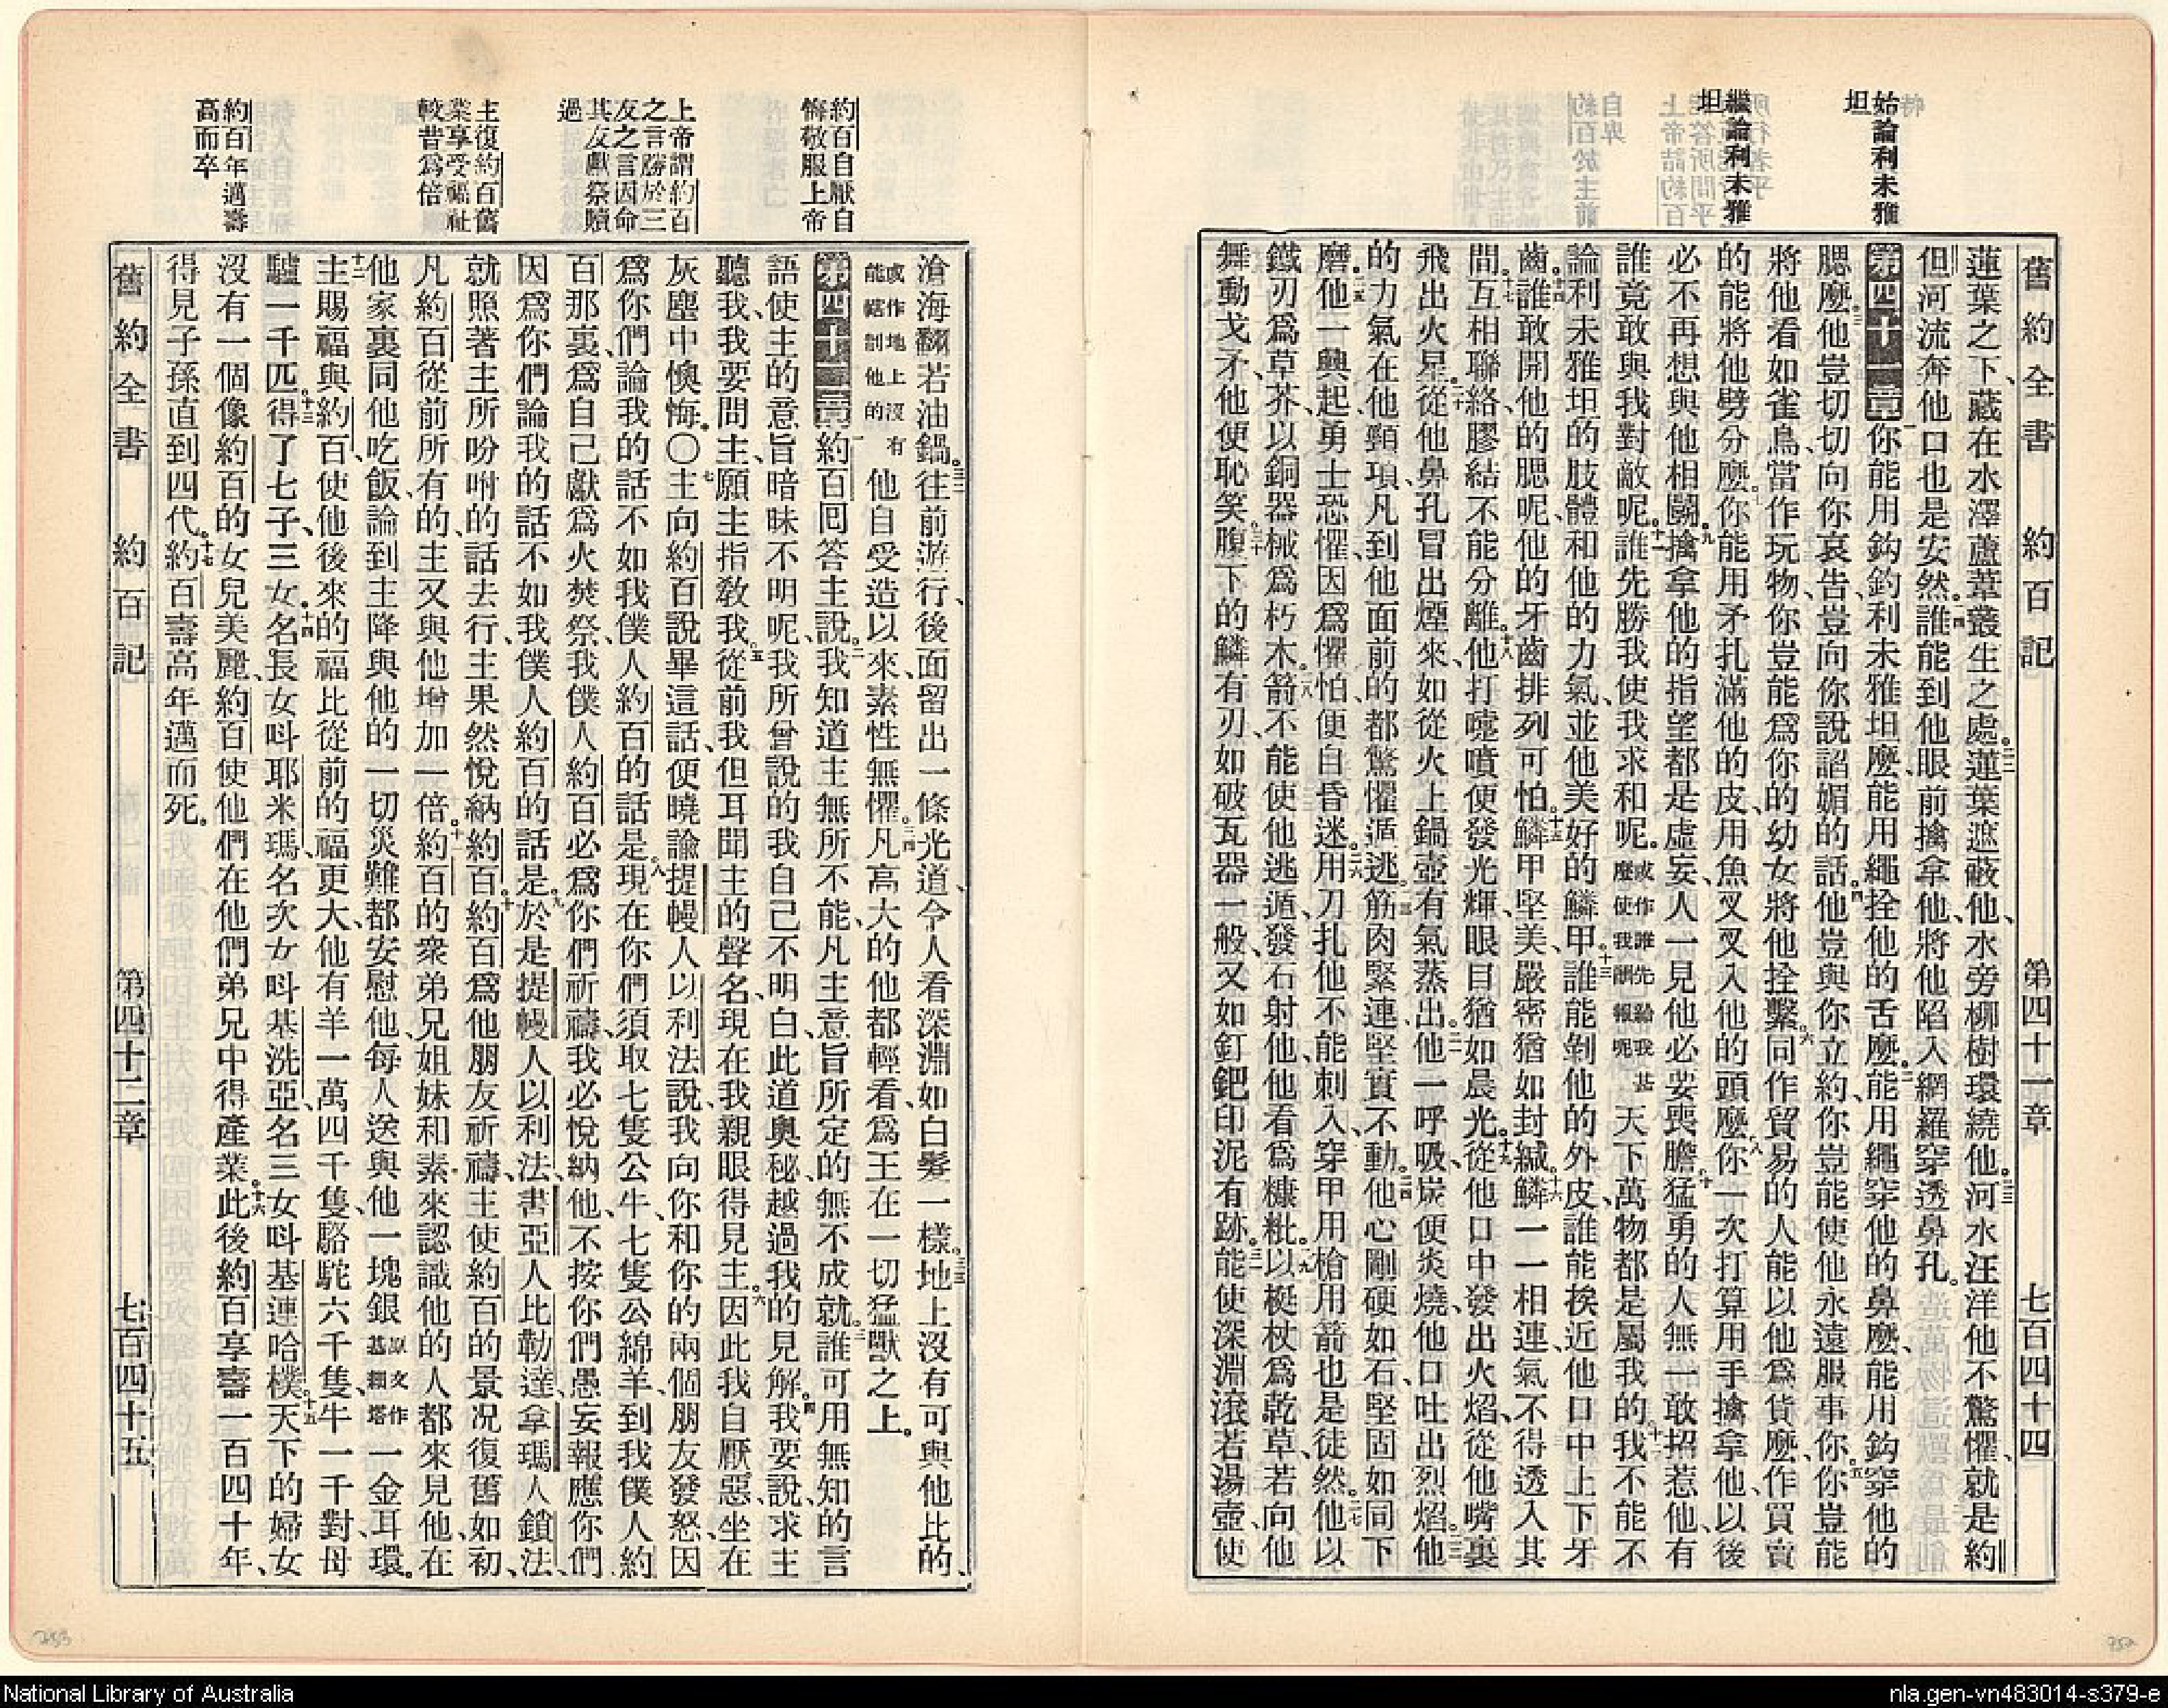 始論利未雅
坦
繼論利未雅
坦
舊約全書 約百記 第四十一章 七百四十四
蓮葉之下、藏在水澤蘆葦叢生之處。二二蓮葉遮蔽他、水旁柳樹環繞他。二三河水汪洋他不驚懼、就是約
但河流奔他口也是安然。二四誰能到他眼前擒拿他、將他陷入網羅穿透鼻孔。
第四十一章一你能用鈎釣利未雅坦麼、能用繩拴他的舌麼。二能用繩穿他的鼻麼、能用鈎穿他的
腮麼。三他豈切切向你哀告、豈向你說諂媚的話。四他豈與你立約、你豈能使他永遠服事你。五你豈能
將他看如雀鳥、當作玩物、你豈能爲你的幼女將他拴繫。六同作貿易的人能以他爲貨麼、作買賣
的能將他劈分麼。七你能用矛扎滿他的皮、用魚叉叉入他的頭麼。八你一次打算用手擒拿他、以後
必不再想與他相鬭。九擒拿他的指望都是虛妄、人一見他必要喪膽。十猛勇的人無一敢招惹他、有
誰竟敢與我對敵呢。十一誰先勝我使我求和呢。或作誰先給我甚麼使我酬報呢天下萬物都是屬我的。十二我不能不
論利未雅坦的肢體和他的力氣、並他美好的鱗甲。十三誰能剝他的外皮、誰能挨近他口中上下牙
齒。十四誰敢開他的腮呢、他的牙齒排列可怕。十五鱗甲堅美、嚴密猶如封緘。十六鱗一一相連、氣不得透入其
間。十七互相聯絡膠結不能分離。十八他打嚏噴便發光輝、眼目猶如晨光。十九從他口中發出火焰、從他嘴裏
飛出火星。二十從他鼻孔冒出煙來、如從火上鍋壺有氣蒸出。二一他一呼吸、炭便炎燒、他口吐出烈焰。二二他
的力氣在他頸項、凡到他面前的都驚懼遁逃。二三筋肉緊連、堅實不動。二四他心剛硬如石、堅固如同下
磨。二五他一興起、勇士恐懼、因爲懼怕、便自昏迷。二六用刀扎他不能刺入、穿甲用槍用箭也是徒然。二七他以
鐵刃爲草芥、以銅器械爲朽木。二八箭不能使他逃遁、發石射他、他看爲糠粃。二九以梃杖爲乾草、若向他
舞動戈矛、他便恥笑。三十腹下的鱗有刃、如破瓦器一般、又如釘鈀印泥有跡。三一能使深淵滾若湯壺、使
約百自厭自
悔敬服上帝
上帝謂約百
之言勝於三
友之言因命
其友獻祭贖
過
主復約百舊
業享受福祉
較昔爲倍
約百年邁壽
高而卒
滄海翻若油鍋。三二往前游行、後面留出一條光道、令人看深淵如白髮一樣。三三地上沒有可與他比的、
或作地上沒有能轄制他的他自受造以來、素性無懼。三四凡高大的他都輕看、爲王在一切猛獸之上。
第四十二章一約百囘答主說。二我知道主無所不能、凡主意旨所定的無不成就。三誰可用無知的言
語使主的意旨暗昧不明呢、我所曾說的我自己不明白、此道奧秘、越過我的見解。四我要說、求主
聽我、我要問主、願主指敎我。五從前我但耳聞主的聲名、現在我親眼得見主。六因此我自厭惡、坐在
灰塵中懊悔。○七主向約百說畢這話、便曉諭提幔人以利法說、我向你和你的兩個朋友發怒、因
爲你們論我的話不如我僕人約百的話是。八現在你們須取七隻公牛、七隻公綿羊、到我僕人約
百那裏、爲自己獻爲火焚祭、我僕人約百必爲你們祈禱、我必悅納他、不按你們愚妄報應你們、
因爲你們論我的話不如我僕人約百的話是。九於是提幔人以利法、書亞人比勒達、拿瑪人鎖法、
就照著主所吩咐的話去行、主果然悅納約百。十約百爲他朋友祈禱、主使約百的景况復舊如初、
凡約百從前所有的、主又與他增加一倍。十一約百的衆弟兄姐妹和素來認識他的人都來見他、在
他家裏同他吃飯、論到主降與他的一切災難、都安慰他、每人送與他一塊銀原文作基細塔一金耳環。
十二主賜福與約百、使他後來的福比從前的福更大、他有羊一萬四千隻、駱駝六千隻、牛一千對、母
驢一千匹。十三得了七子、三女。十四名長女呌耶米瑪、名次女呌基洗亞、名三女呌基連哈樸。十五天下的婦女
沒有一個像約百的女兒美麗、約百使他們在他們弟兄中得產業。十六此後約百享壽一百四十年、
得見子孫直到四代。十七約百壽高年邁而死。
舊約全書 約百記 第四十二章 七百四十五
National Library of Australia
nla.gen-vn483014-s379-e